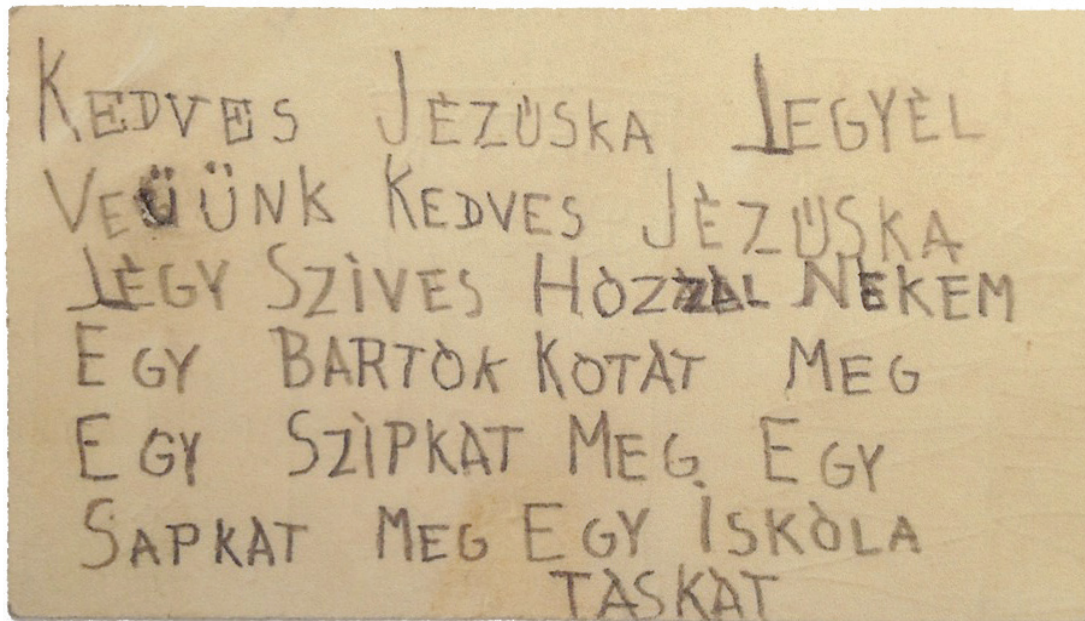 KEDVES JÈZÙSKA LEGYÈL
VEÜÜNK KEDVES JÈZÙSKA
LÈGY SZÌVES HÒZZÀL NEKEM
EGY BARTÒK KOTÀT MEG
EGY SZÌPKAT MEG EGY
SAPKAT MEG EGY İSKÒLA
TASKAT